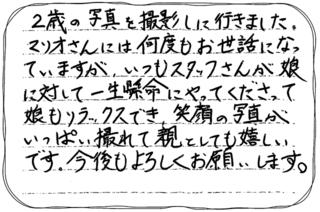 2歳の写真を撮影しに行きました。
マリオさんには何度もお世話になっ
ていますが、いつもスタッフさんが娘
に対して一生懸命にやってくださって
娘もリラックスでき、笑顔の写真が
いっぱい撮れて親としても嬉しい
です。今後もよろしくお願いします。